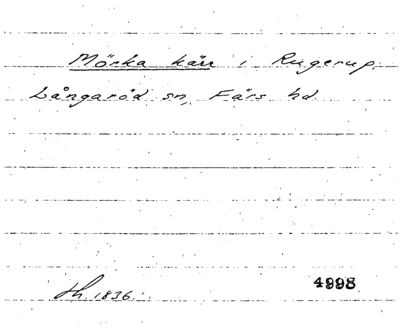 Mörka kärr i Rugerup,
Långaröd sn, Färs hd
th 1836. 4998